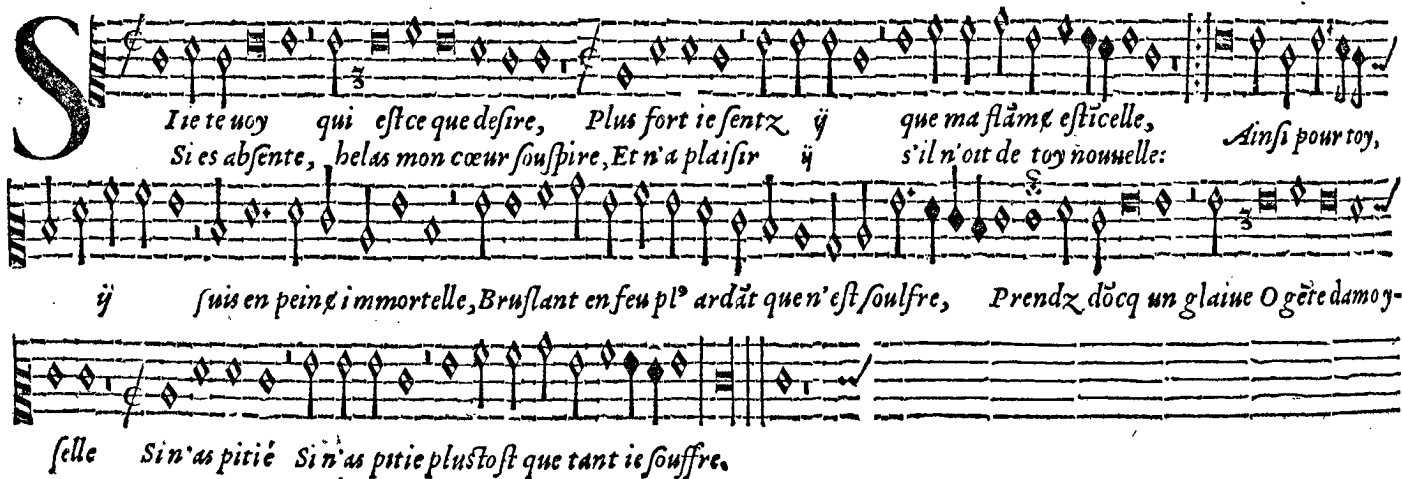 S
I ie te uoy qui estce que desire, Plus fort ie sentz ij que ma flãme estĩcelle, Ainsi pour toy,
Si es absente, helas mon cœur souspire, Et n'a plaisir ij s'il n'oit de toy nouuelle:
ij suis en peine immortelle, Bruslant en feu plꝰ ardãt que n'est soulfre, Prendz dõcq un glaiue O gẽte damoy-
selle Si n'as pitié Si n'as pitie plustost que tant ie souffre.